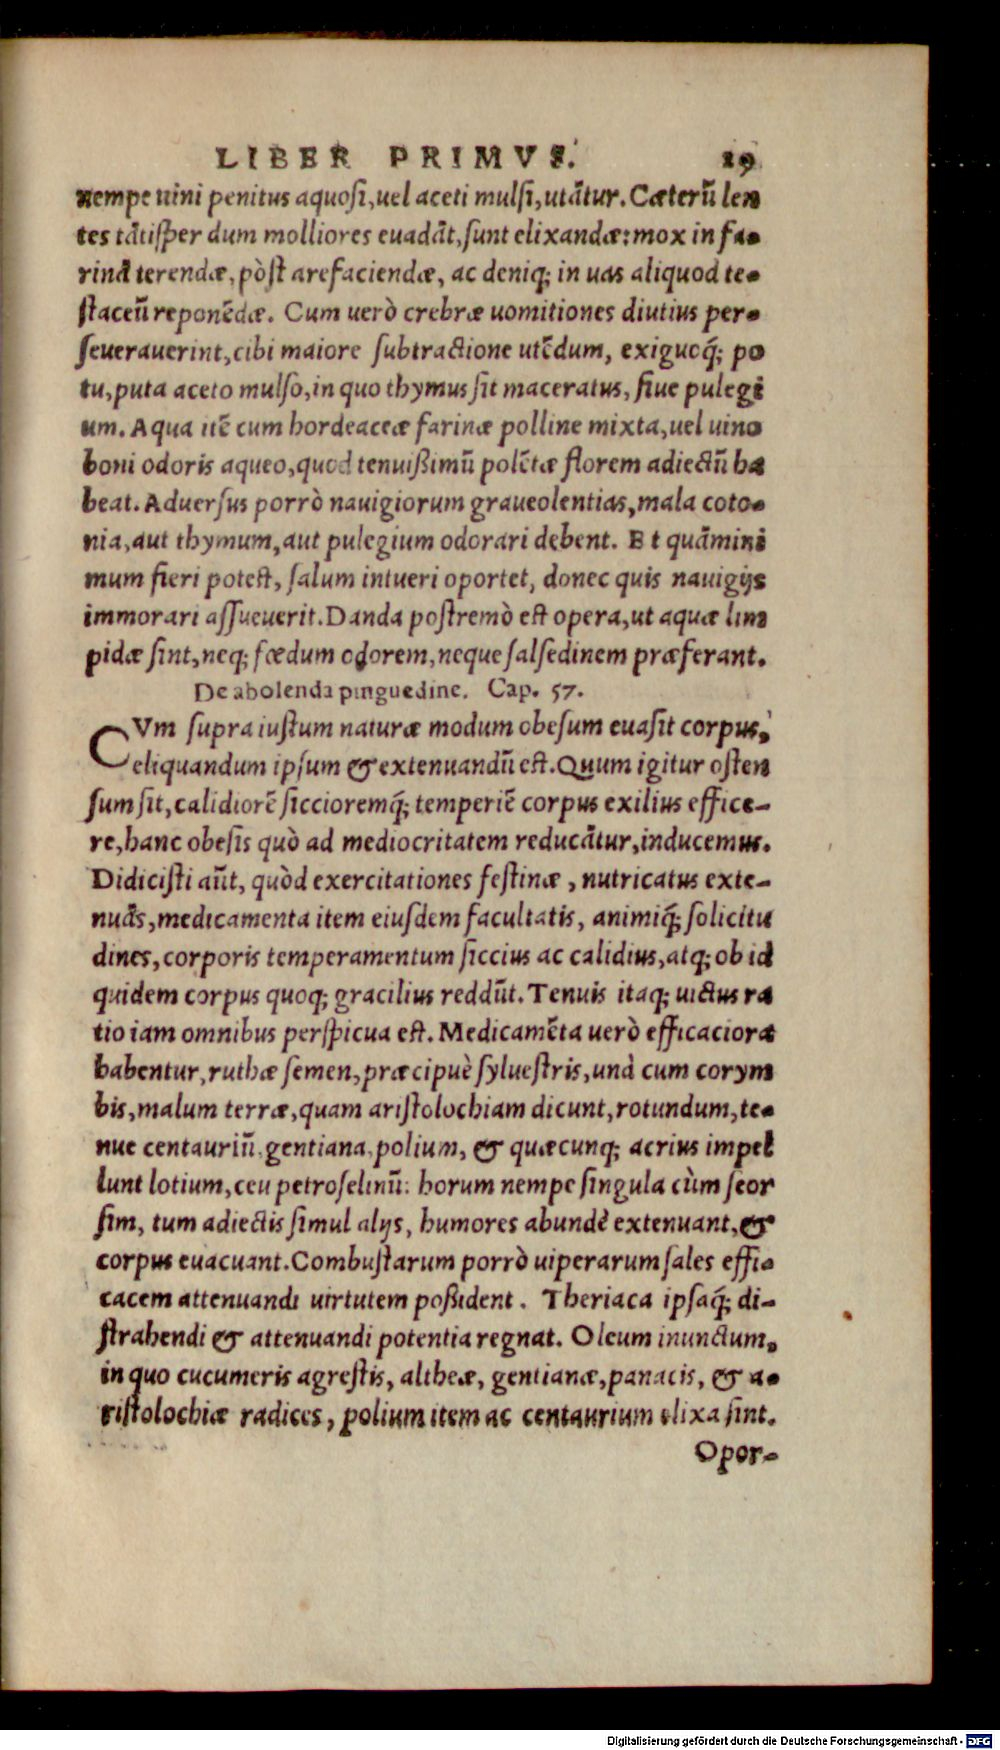 LIBER PRIMVS. 29
nempe uini penitus aquosi, uel aceti mulsi, utãtur. Cæterũ len
tes tãtisper dum molliores euadãt, sunt elixandæ: mox in fa-
rinã terendæ, pòst arefaciendæ, ac deniq; in uas aliquod te-
staceũ reponẽdæ. Cum uerò crebræ uomitiones diutius per-
seuerauerint, cibi maiore subtractione utẽdum, exiguoq́; po
tu, puta aceto mulso, in quo thymus sit maceratus, siue pulegi
um. Aqua itẽ cum hordeaceæ farinæ polline mixta, uel uino
boni odoris aqueo, quod tenuißimũ polẽtæ florem adiectũ ha
beat. Aduersus porrò nauigiorum graueolentias, mala coto-
nia, aut thymum, aut pulegium odorari debent. Et quãmini
mum fieri potest, salum intueri oportet, donec quis nauigijs
immorari assueuerit. Danda postremò est opera, ut aquæ lim
pidæ sint, neq; fœdum odorem, neque salsedinem præferant.
De abolenda pinguedine. Cap. 57.
CVm supra iustum naturæ modum obesum euasit corpus,
eliquandum ipsum & extenuandũ est. Quum igitur osten
sum sit, calidiorẽ siccioremq́; temperiẽ corpus exilius effice-
re, hanc obesis quò ad mediocritatem reducãtur, inducemus.
Didicisti aũt, quòd exercitationes festinæ, nutricatus exte-
nuãs, medicamenta item eiusdem facultatis, animiq́; solicitu
dines, corporis temperamentum siccius ac calidius, atq; ob id
quidem corpus quoq; gracilius reddũt. Tenuis itaq; uictus ra
tio iam omnibus perspicua est. Medicamẽta uerò efficaciora
habentur, ruthæ semen, præcipuè syluestris, unà cum corym
bis, malum terræ, quam aristolochiam dicunt, rotundum, te-
nue centauriũ, gentiana, polium, & quæcunq; acrius impel
lunt lotium, ceu petroselinũ: horum nempe singula cùm seor
sim, tum adiectis simul alijs, humores abundè extenuant, &
corpus euacuant. Combustarum porrò uiperarum sales effi-
cacem attenuandi uirtutem poßident. Theriaca ipsaq́; di-
strahendi & attenuandi potentia regnat. Oleum inunctum,
in quo cucumeris agrestis, altheæ, gentianæ, panacis, & a-
ristolochiæ radices, polium item ac centaurium elixa sint.
Opor-
Digitalisierung gefördert durch die Deutsche Forschungsgemeinschaft - DFG